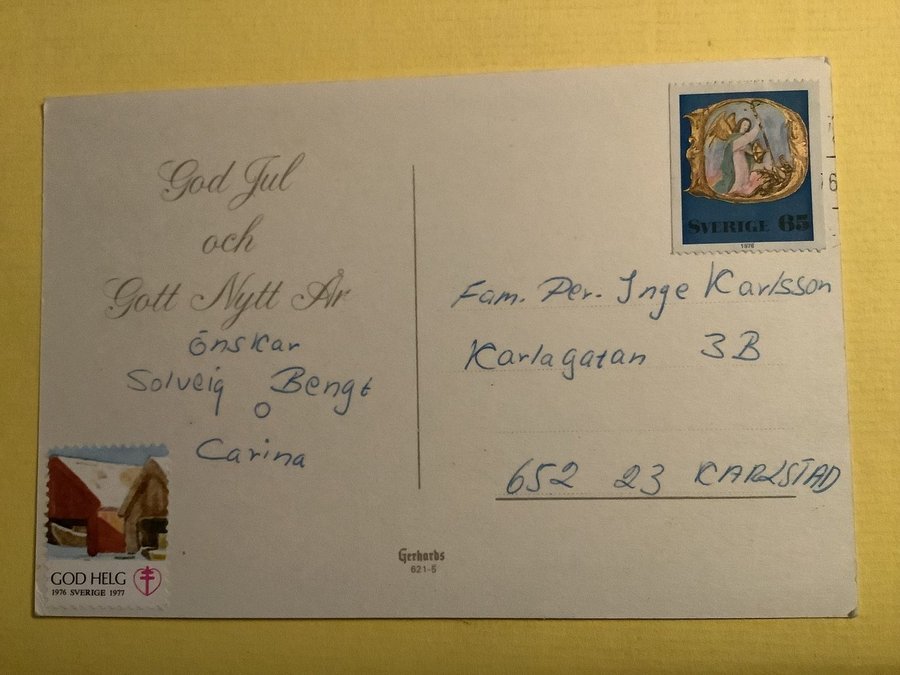 God Jul
och
Gott Nytt År
önskar
Solveig Bengt
o
Carina
GOD HELG
1976 SVERIGE 1977
Gerhards
621-5
SVERIGE 65
1976
76
Fam. Per-Inge Karlsson
Karlagatan 3B
652 23 KARLSTAD